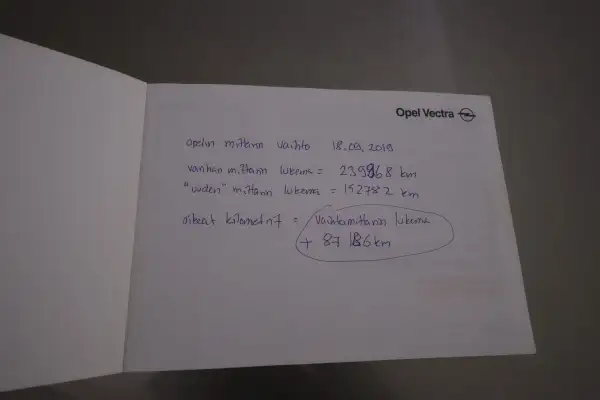 Opel Vectra
opelin mittarin vaihto 18.09.2019
vanhan mittarin lukema = 239968 km
"uuden" mittarin lukema = 152782 km
oikeat kilometrit = vaihtomittarin lukema
+ 87 186 km